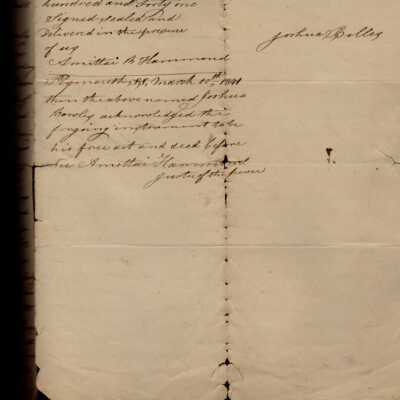 hundred and Forty one
Signed, sealed and
Delivered in the presence
of us
Joshua Bolles
Amittai B Hammond
Plymouth, SS, March 10th 1841
then the above named Joshua
acknowledged the
instrument to be
his free act and deed before
me Amittai Hammond
Justice of the peace